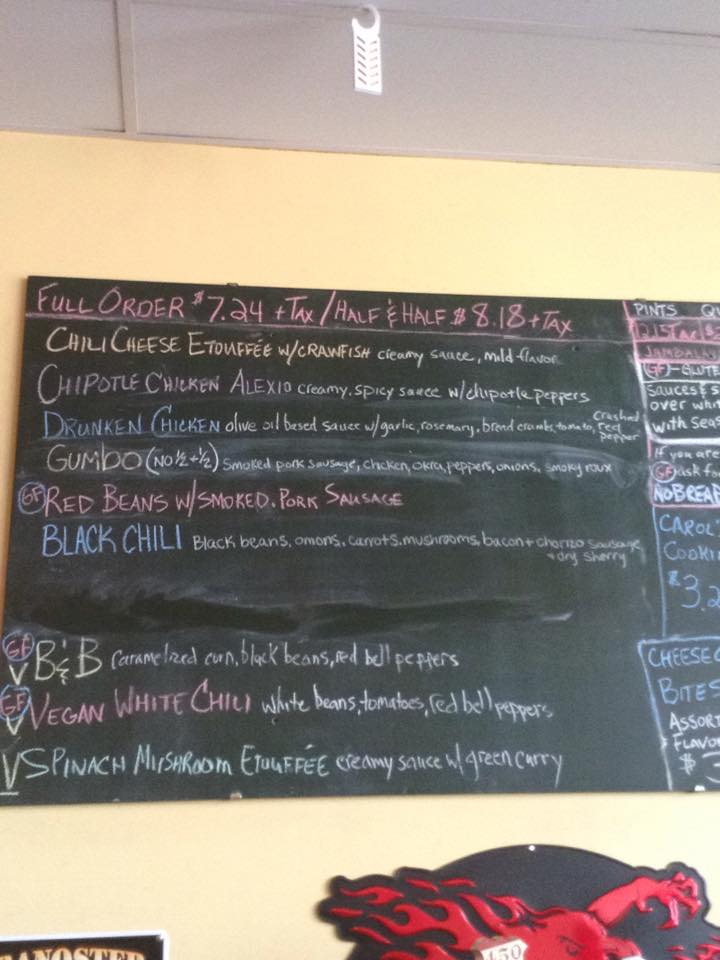 FULL ORDER $7.24 + TAX / HALF & HALF $8.18 + TAX
CHILI CHEESE ETOUFFÉE W/CRAWFISH creamy sauce, mild flavor
CHIPOTLE CHICKEN ALEXIO creamy, spicy sauce w/chipotle peppers
DRUNKEN CHICKEN olive oil based sauce w/garlic, rosemary, bread crumbs, tomato, crushed red pepper
GUMBO (NO ½ + ½) Smoked pork sausage, chicken, okra, peppers, onions, smoky roux
GF RED BEANS W/SMOKED PORK SAUSAGE
BLACK CHILI Black beans, onions, carrots, mushrooms, bacon + chorizo sausage
+ dry sherry
GF V B & B Caramelized corn, black beans, red bell peppers
GF V VEGAN WHITE CHILI white beans, tomatoes, red bell peppers
V SPINACH MUSHROOM ETOUFFÉE creamy sauce w/ green curry
PINTS
JAMBALA
(GF)-GLUTE
SAUCES & S
OVER WHI
WITH SEAS
If you are
GF ask fo
NO BREA
CAROL
COOKI
$3.2
CHEESEC
BITES
ASSORT
FLAVO
$3
ANGSTER